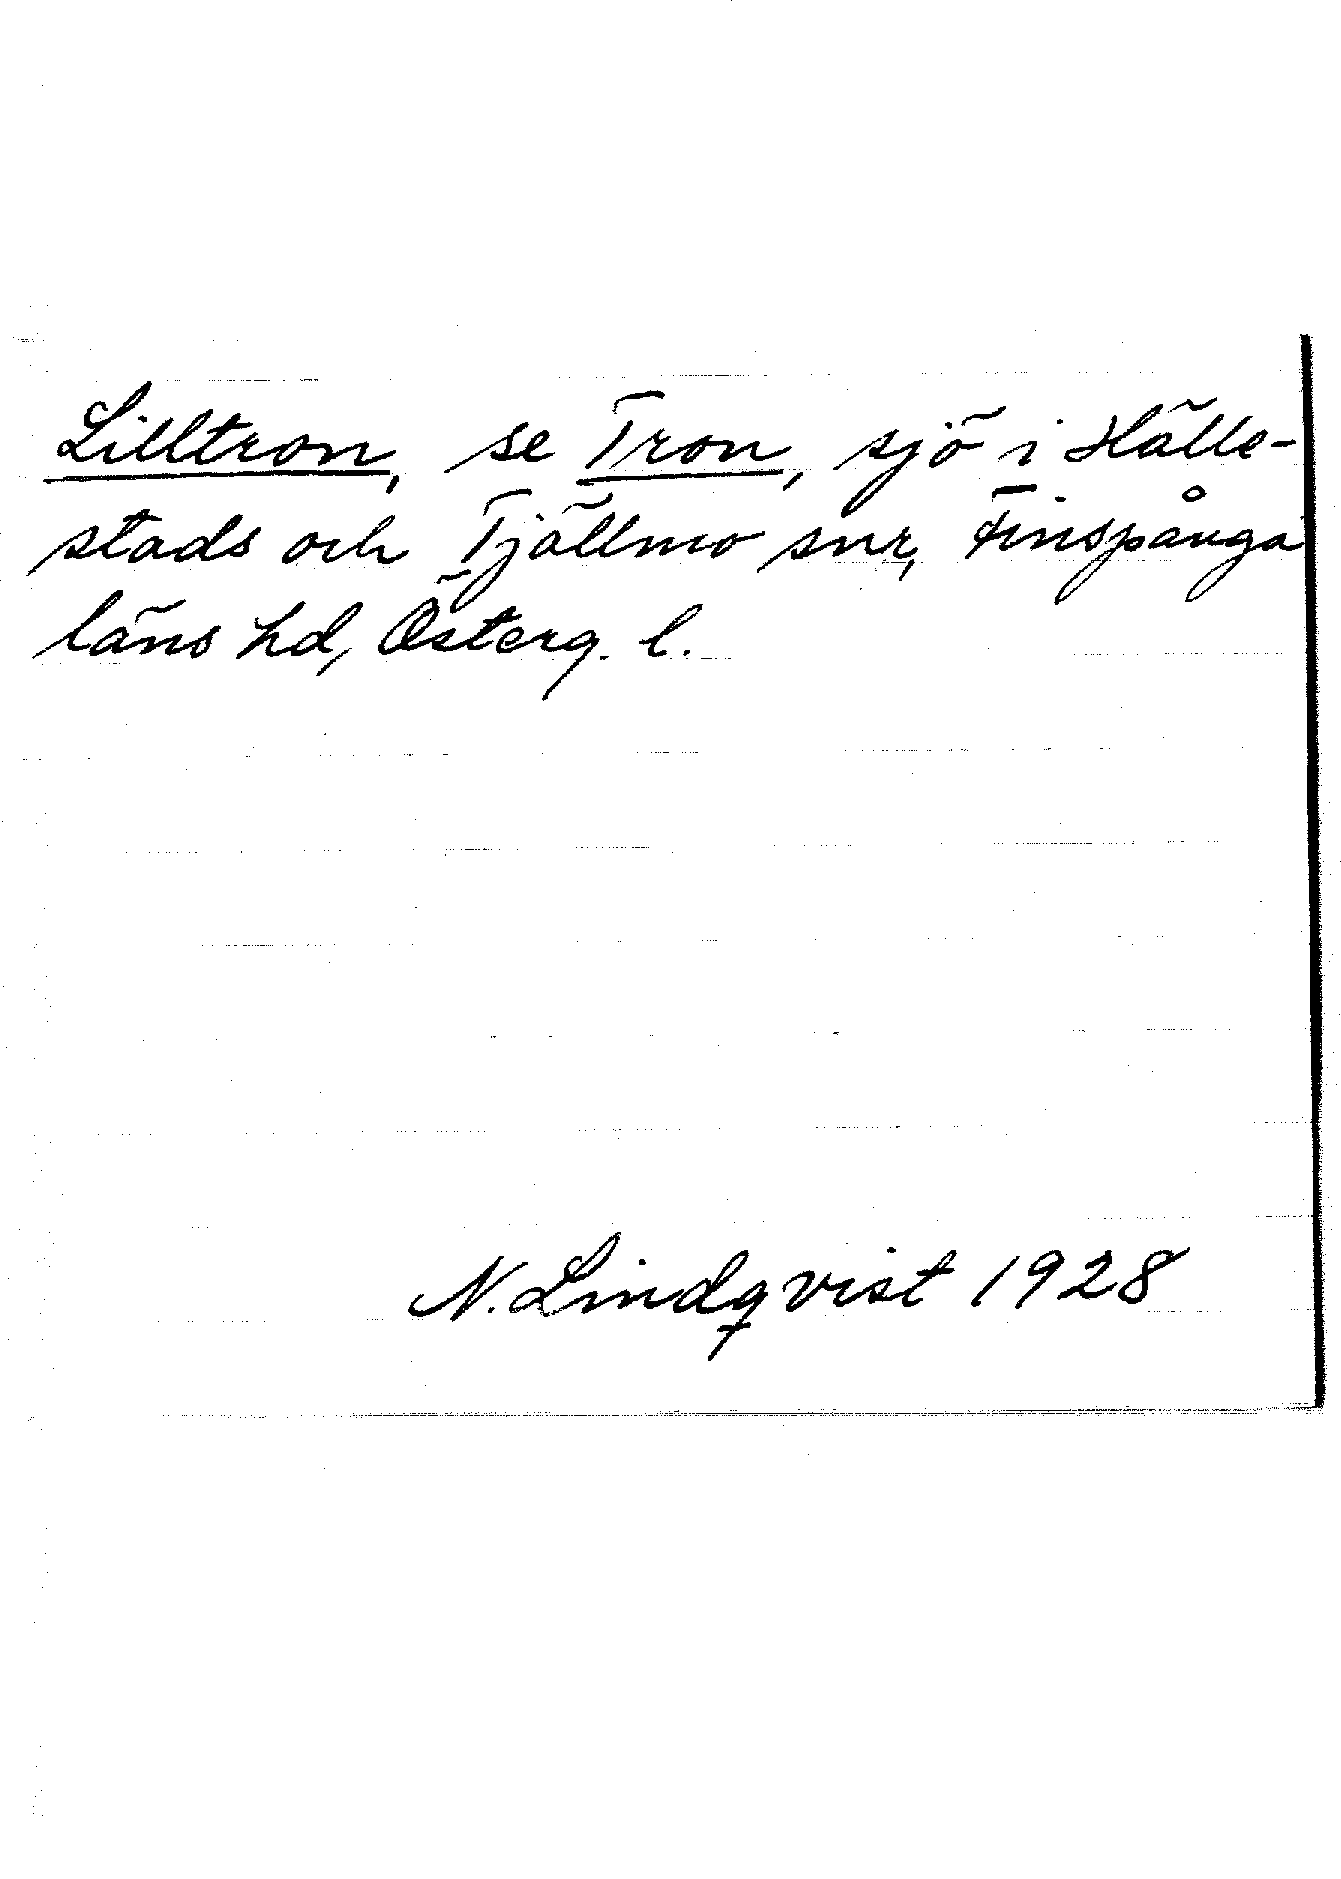 Lilltron, se Tron, sjö i Hälle-
stads och Tjällmo snr, Finspånga
läns hd, Österg. l.
N. Lindqvist 1928